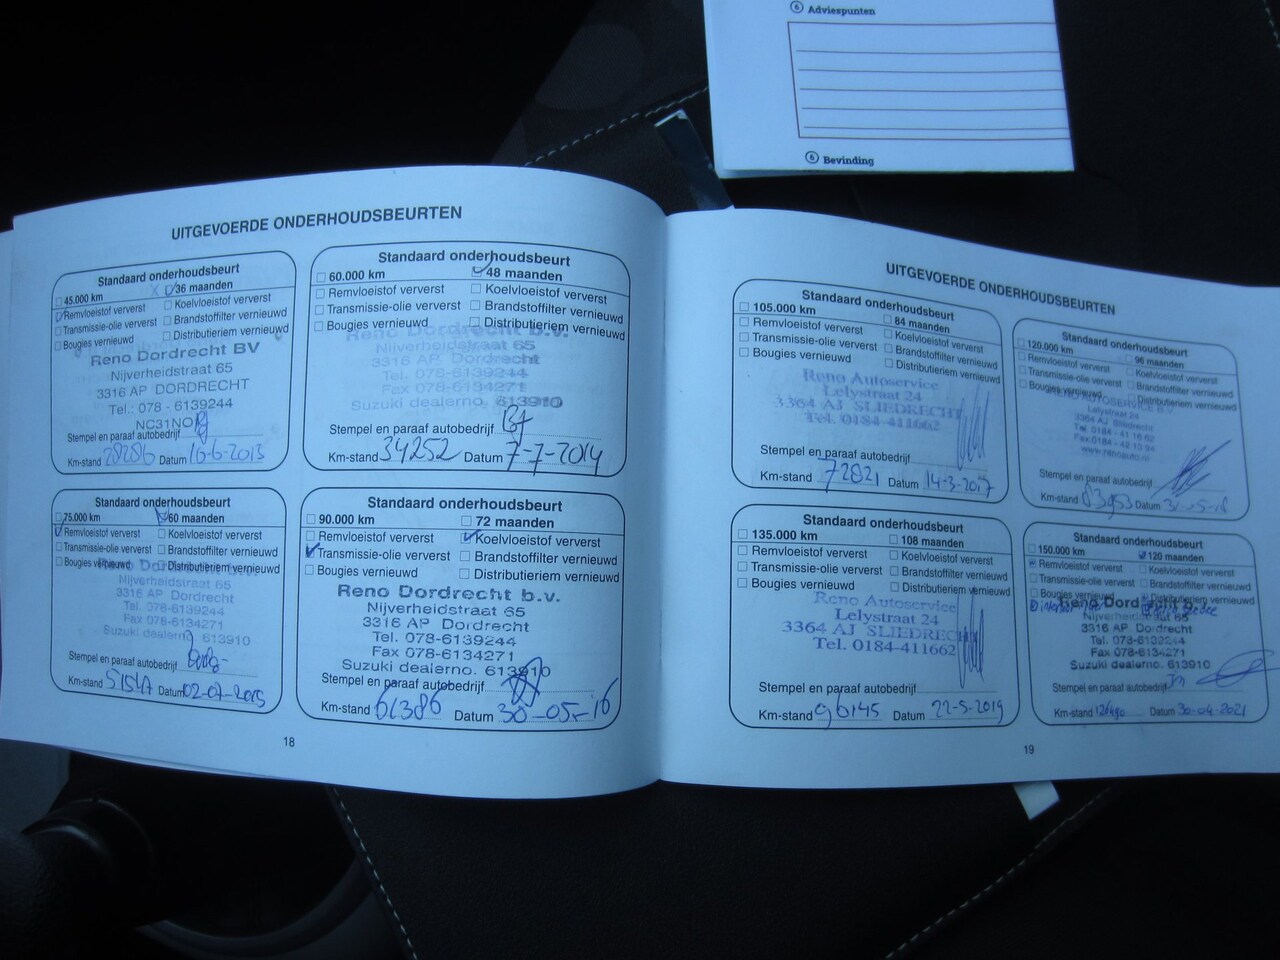 6 Adviespunten
6 Bevinding
UITGEVOERDE ONDERHOUDSBEURTEN
Standaard onderhoudsbeurt
45.000 km 36 maanden
Remvloeistof ververst Koelvloeistof ververst
Transmissie-olie ververst Brandstoffilter vernieuwd
Bougies vernieuwd Distributieriem vernieuwd
Reno Dordrecht BV
Nijverheidstraat 65
3316 AP DORDRECHT
Tel.: 078 - 6139244
NC31NO
Stempel en paraaf autobedrijf
Km-stand 28286 Datum 10-6-2013
Standaard onderhoudsbeurt
60.000 km 48 maanden
Remvloeistof ververst Koelvloeistof ververst
Transmissie-olie ververst Brandstoffilter vernieuwd
Bougies vernieuwd Distributieriem vernieuwd
Reno Dordrecht b.v.
Nijverheidstraat 65
3316 AP Dordrecht
Tel. 078-6139244
Fax 078-6134271
Suzuki dealerno. 613910
Stempel en paraaf autobedrijf
Km-stand 34252 Datum 7-7-2014
Standaard onderhoudsbeurt
75.000 km 60 maanden
Remvloeistof ververst Koelvloeistof ververst
Transmissie-olie ververst Brandstoffilter vernieuwd
Bougies vernieuwd Distributieriem vernieuwd
Nijverheidstraat 65
3316 AP Dordrecht
Tel. 078-6139244
Fax 078-6134271
Suzuki dealerno. 613910
Stempel en paraaf autobedrijf
Km-stand Datum 02-07-2015
Standaard onderhoudsbeurt
90.000 km 72 maanden
Remvloeistof ververst Koelvloeistof ververst
Transmissie-olie ververst Brandstoffilter vernieuwd
Bougies vernieuwd Distributieriem vernieuwd
Reno Dordrecht b.v.
Nijverheidstraat 65
3316 AP Dordrecht
Tel. 078-6139244
Fax 078-6134271
Suzuki dealerno. 613910
Stempel en paraaf autobedrijf
Km-stand 61386 Datum 30-05-16
18
UITGEVOERDE ONDERHOUDSBEURTEN
Standaard onderhoudsbeurt
105.000 km 84 maanden
Remvloeistof ververst Koelvloeistof ververst
Transmissie-olie ververst Brandstoffilter vernieuwd
Bougies vernieuwd Distributieriem vernieuwd
Reno Autoservice
Lelystraat 24
3364 AJ SLIEDRECHT
Tel. 0184-411662
Stempel en paraaf autobedrijf
Km-stand 72821 Datum 14-3-2017
Standaard onderhoudsbeurt
120.000 km 96 maanden
Remvloeistof ververst Koelvloeistof ververst
Transmissie-olie ververst Brandstoffilter vernieuwd
Bougies vernieuwd Distributieriem vernieuwd
RENO AUTOSERVICE B.V.
Lelystraat 24
3364 AJ Sliedrecht
Tel. 0184 - 41 16 62
Fax 0184 - 42 13 94
www.renoauto.nl
Stempel en paraaf autobedrijf
Km-stand 83953 Datum
Standaard onderhoudsbeurt
135.000 km 108 maanden
Remvloeistof ververst Koelvloeistof ververst
Transmissie-olie ververst Brandstoffilter vernieuwd
Bougies vernieuwd Distributieriem vernieuwd
Reno Autoservice
Lelystraat 24
3364 AJ SLIEDRECHT
Tel. 0184-411662
Stempel en paraaf autobedrijf
Km-stand 96145 Datum 22-5-2019
Standaard onderhoudsbeurt
150.000 km 120 maanden
Remvloeistof ververst Koelvloeistof ververst
Transmissie-olie ververst Brandstoffilter vernieuwd
Bougies vernieuwd Distributieriem vernieuwd
Reno Dordrecht b.v.
Nijverheidstraat 65
3316 AP Dordrecht
Tel. 078-6139244
Fax 078-6134271
Suzuki dealerno. 613910
Stempel en paraaf autobedrijf
Km-stand Datum 30-04-2021
19